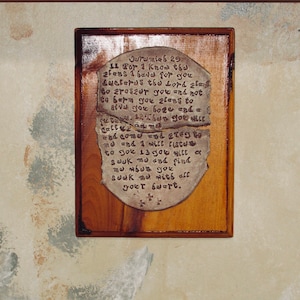 Jeremiah 29:
11 For I know the
plans I have for you
declares the Lord plans
to prosper you and not
to harm you plans to
give you hope and a
future. 12 Then you will
call on me
and come and pray to
me and I will listen
to you 13 you will
seek me and find
me when you
seek me with all
your heart.